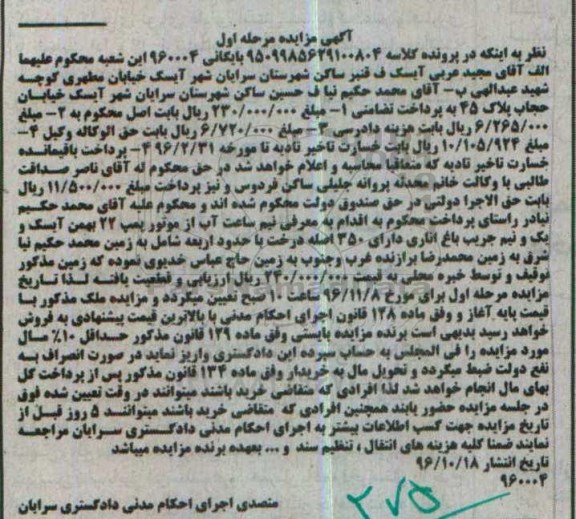 آگهی مزایده مرحله اول
نظر به اینکه در پرونده کلاسه ۹۵۰۹۹۸۵۶۲۹۱۰۰۸۰۴ بایگانی ۹۶۰۰۰۴ این شعبه محکوم علیهما
الف آقای مجید عربی آیسک ف قنبر ساکن شهرستان سرایان شهر آیسک خیابان مطهری کوچه
شهید عبدالهی ب- آقای محمد حکیم نیا ف حسین ساکن شهرستان سرایان شهر آیسک خیابان
حجاب پلاک ۴۵ به پرداخت تضامنی ۱- مبلغ ۲۳۰/۰۰۰/۰۰۰ ریال بابت اصل محکوم به ۲- مبلغ
۶/۲۶۵/۰۰۰ ریال بابت هزینه دادرسی ۳- مبلغ ۶/۷۲۰/۰۰۰ ریال بابت حق الوکاله وکیل ۴-
مبلغ ۱۰/۱۰۵/۹۲۴ ریال بابت خسارت تاخیر تادیه تا مورخه ۹۶/۲/۳۱ ۴- پرداخت باقیمانده
خسارت تاخیر تادیه که متعاقبا محاسبه و اعلام خواهد شد در حق محکوم له آقای ناصر صداقت
طالبی با وکالت خانم محدثه پروانه جلیلی ساکن فردوس و نیز پرداخت مبلغ ۱۱/۵۰۰/۰۰۰ ریال
بابت حق الاجرا دولتی در حق صندوق دولت محکوم شده اند و محکوم علیه آقای محمد حکیم
نیادر راستای پرداخت محکوم به اقدام به معرفی نیم ساعت آب از موتور پمپ ۲۲ بهمن آیسک و
یک و نیم جریب باغ اناری دارای ۳۵۰ اصله درخت با حدود اربعه شامل به زمین محمد حکیم نیا
شرق به زمین محمدرضا برازنده غرب وجنوب به زمین حاج عباس خدیوی نموده که زمین مذکور
توقیف و توسط خبره محلی به قیمت ۲۴۰/۰۰۰/۰۰۰ ریال ارزیابی و قطعیت یافته لذا تاریخ
مزایده مرحله اول برای مورخ ۹۶/۱۱/۸ ساعت ۱۰ صبح تعیین میگردد و مزایده ملک مذکور با
قیمت پایه آغاز و وفق ماده ۱۲۸ قانون اجرای احکام مدنی با بالاترین قیمت پیشنهادی به فروش
خواهد رسید بدیهی است برنده مزایده بایستی وفق ماده ۱۲۹ قانون مذکور حداقل ۱۰٪ سال
مورد مزایده را فی المجلس به حساب سپرده این دادگستری واریز نماید در صورت انصراف به
نفع دولت ضبط میگردد و تحویل مال به خریدار وفق ماده ۱۳۴ قانون مذکور پس از پرداخت کل
بهای مال انجام خواهد شد لذا افرادی که متقاضی خرید باشند میتوانند در وقت تعیین شده فوق
در جلسه مزایده حضور یابند همچنین افرادی که متقاضی خرید باشند میتوانند ۵ روز قبل از
تاریخ مزایده جهت کسب اطلاعات بیشتر به اجرای احکام مدنی دادگستری سرایان مراجعه
نمایند ضمنا کلیه هزینه های انتقال ، تنظیم سند و ... بعهده برنده مزایده میباشد
تاریخ انتشار ۹۶/۱۰/۱۸
۹۶۰۰۰۴
متصدی اجرای احکام مدنی دادگستری سرایان
۲۷۵